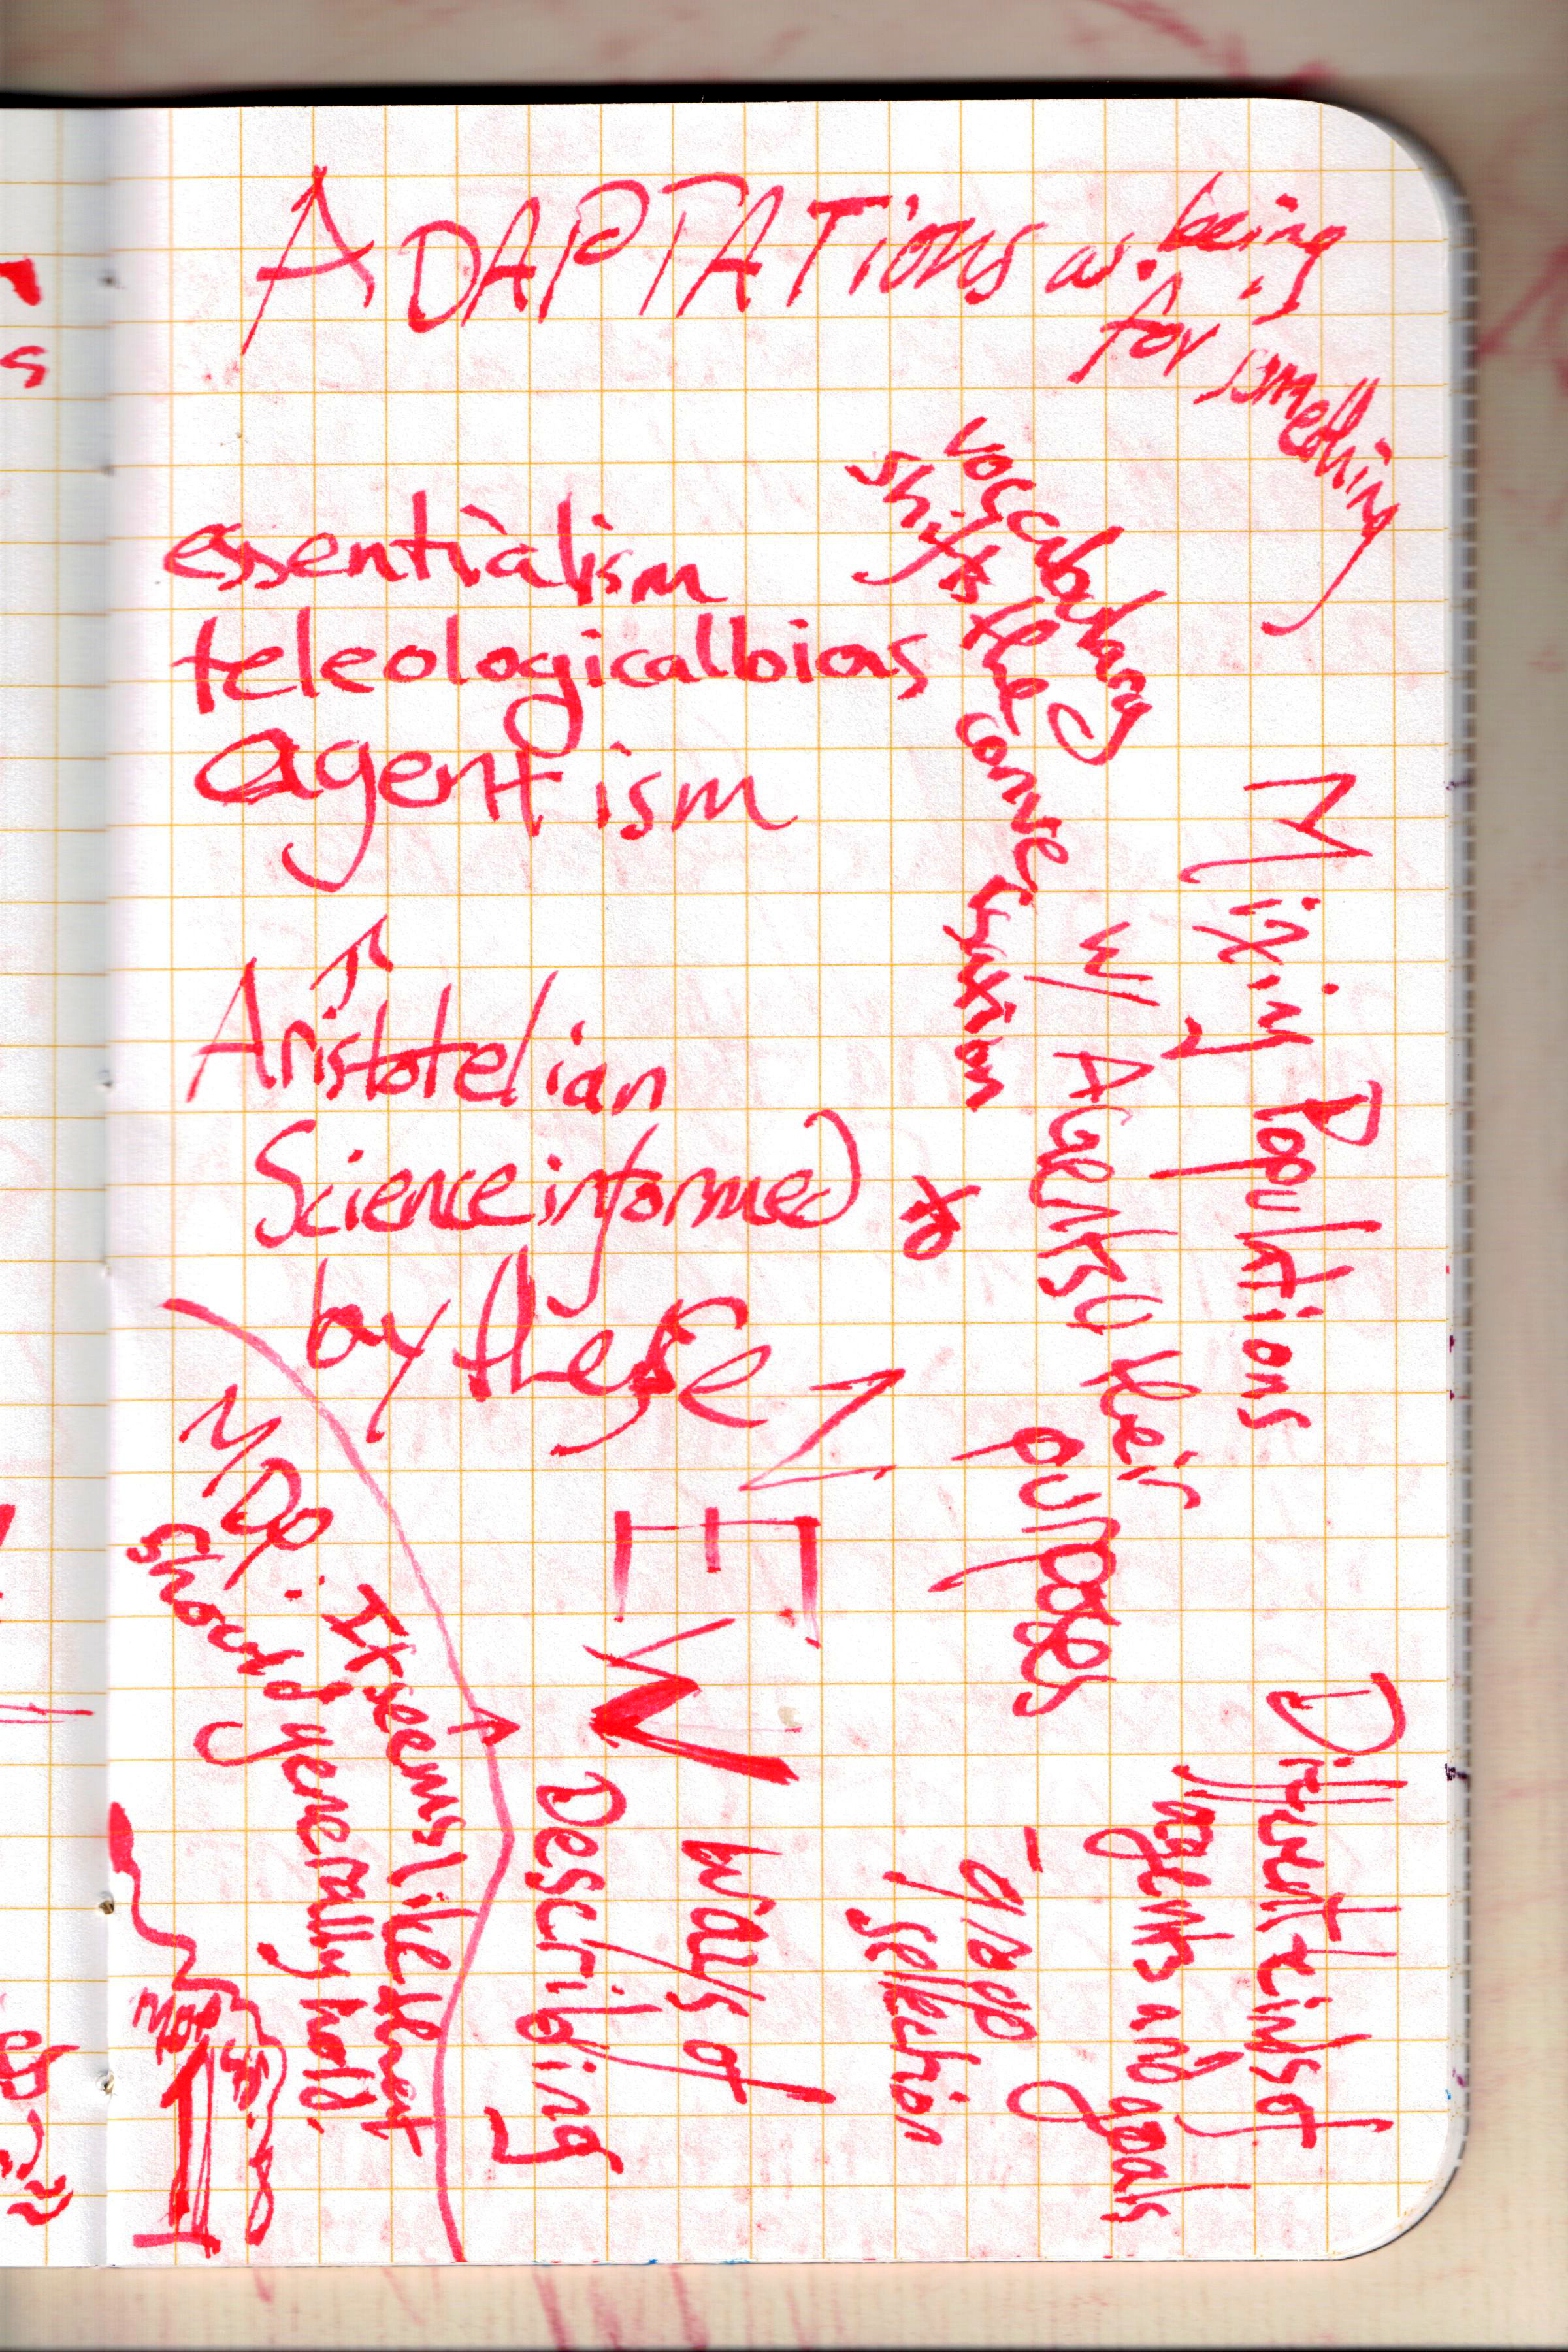 ADAPTATions as being
for something
vocabulary
shifts the conversation
essentialism
teleological bias
agentism
Aristotelian
Science informed
by these
Mixing Populations
w/ AGents & their
purposes
Different kinds of
agents and goals
- grade
selection
NEW
ways of
Describing
It seems like that
should generally hold.